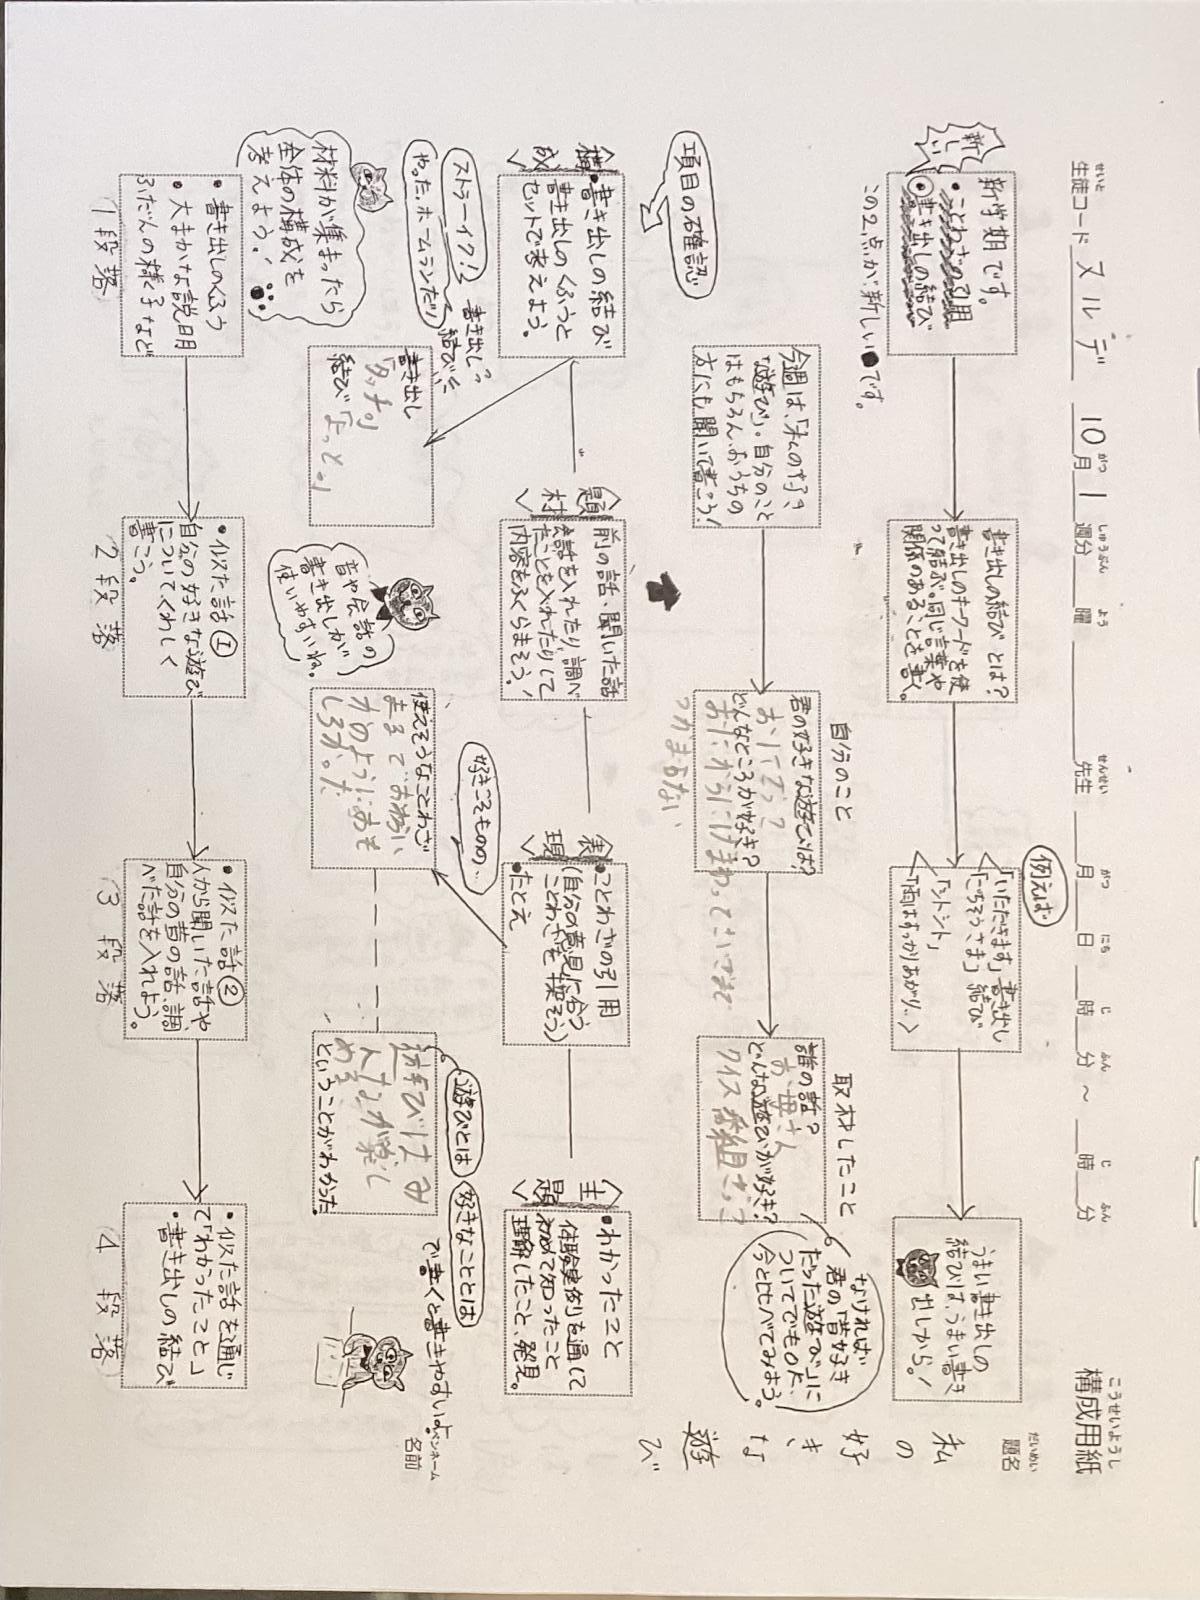 構成用紙
こうせいようし
生徒コード スルデ 10月1週分 曜 先生 月 日 時 分 ～ 時 分
せいと がつ しゅうぶん よう せんせい がつ にち じ ふん じ ふん
題名
だいめい
私の好きな遊び
新しい
新学期です。
・ことわざの引用
書き出しの結び
この2点が新しい です。
書き出しの結びとは?
書き出しのキーワードを使
って結ぶ。同じ言葉や
関係のあることを書く。
例えば
「いただきます」書き出し
「ごちそうさま」結び
「シトシト」
「雨はすっかりあがり…」
うまい書き出しの
結びは、うまい書き
出しから!
今週は、「私の好き
な遊び」。自分のこと
はもちろん、おうちの
方にも聞いて書こう!
自分のこと
君の好きな遊びは?
おにごっこ
どんなところが好き?
おにからにげまわってさいごまで
つかまらない
取材したこと
誰の話?
お母さん
どんな遊びが好き?
クイズ番組ごっこ
なければ
君の「昔好き
だった遊び」に
ついてでもOK。
今と比べてみよう。
項目の確認
構成
・書き出しの結び
書き出しのくふうと
セットで考えよう。
題材
前の話、聞いた話
会話を入れたり、調べ
たことを入れたりして
内容をふくらまそう!
表現
・ことわざの引用
(自分の意見に合う
ことわざを探そう)
・たとえ
主題
・わかったこと
体験実例を通して
初めて知ったこと
理解したこと、発見。
ストラーイク!!
やった。ホームランだ!!
書き出し→
結び
書き出し
「タッチ。」
結び
好きこそものの…
遊びとは
好きなこととは
で書くと書きやすいよ。
ペンネーム
名前
音や会話の
書き出しが
使いやすいね。
使えそうなことわざ
まるでお
のようにおも
しろかった
遊びはみ
んなが楽し
める
ということがわかった。
材料が集まったら
全体の構成を
考えよう!
・書き出しのくふう
・大まかな説明
ふだんの様子など
1段落
・似た話①
自分の好きな遊び
についてくわしく
書こう。
2段落
・似た話②
人から聞いた話や
自分の昔の話、調
べた話を入れよう。
3段落
・似た話を通じ
て「わかったこと」
・書き出しの結び
4段落